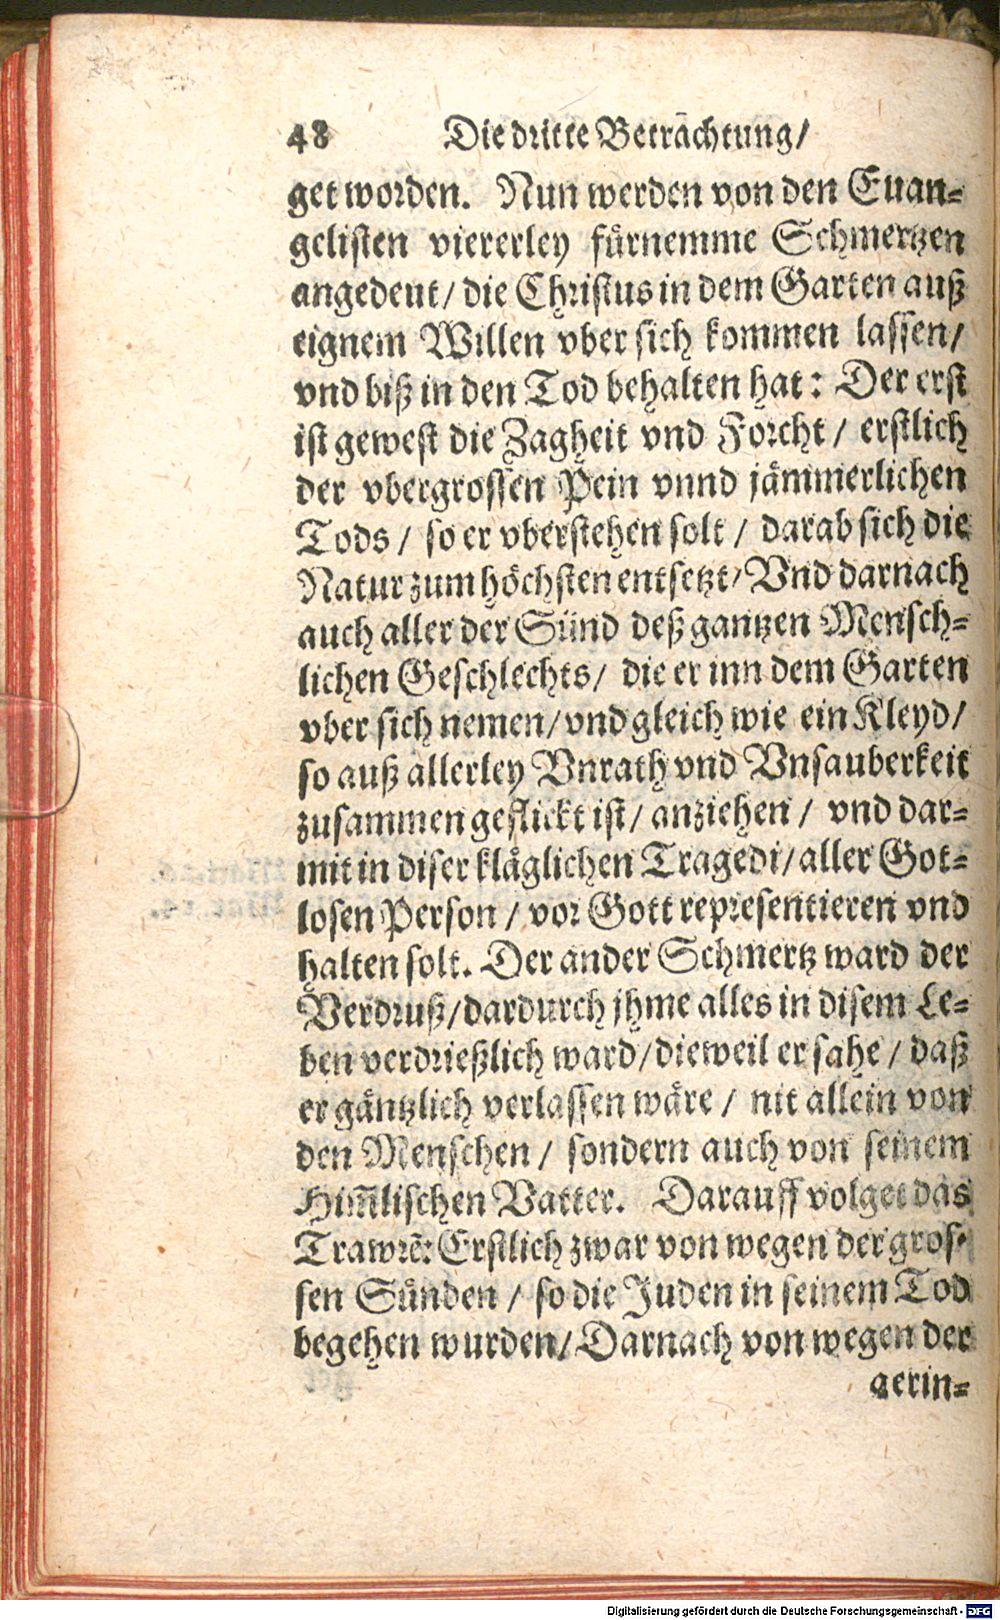 48 Die dritte Betrachtung/
get worden. Nun werden von den Euan-
gelisten viererley fürnemme Schmertzen
angedeut/ die Christus in dem Garten auß
eignem Willen vber sich kommen lassen/
vnd biß in den Tod behalten hat: Der erst
ist gewest die Zagheit vnd Forcht/ erstlich
der vbergrossen Pein vnnd jämmerlichen
Tods/ so er vberstehen solt/ darab sich die
Natur zum höchsten entsetzt/ Vnd darnach
auch aller der Sünd deß gantzen Mensch-
lichen Geschlechts/ die er inn dem Garten
vber sich nemen/ vnd gleich wie ein Kleyd/
so auß allerley Vnrath vnd Vnsauberkeit
zusammen geflickt ist/ anziehen/ vnd dar-
mit in diser kläglichen Tragedi/ aller Got-
losen Person/ vor Gott representieren vnd
halten solt. Der ander Schmertz ward der
Verdruß/ dardurch jhme alles in disem Le-
ben verdrießlich ward/ dieweil er sahe/ daß
er gäntzlich verlassen wäre/ nit allein von
den Menschen/ sondern auch von seinem
Him̃lischen Vatter. Darauff volget das
Trawrẽ: Erstlich zwar von wegen der gros-
sen Sünden/ so die Juden in seinem Tod
begehen wurden/ Darnach von wegen der
gerin-
Digitalisierung gefördert durch die Deutsche Forschungsgemeinschaft - DFG